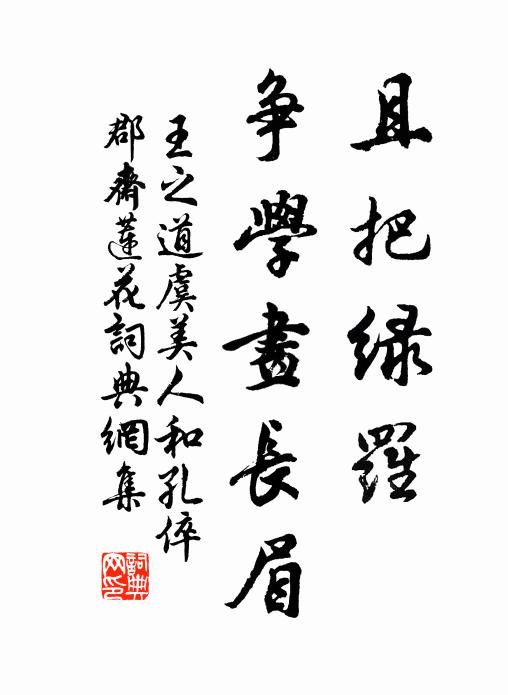 且把绿羅
争學畫長眉
王之道虞美人和孔倅
郡齋蓮花詞典網集
詞典
网印